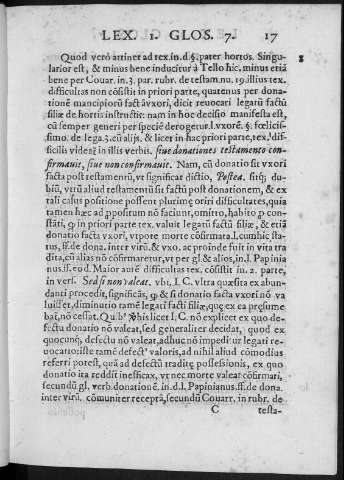 LEX. 1. GLOS. 7. 17
Quod verò attinet ad tex. in. d. §. pater hortos. Singu- 8
larior est, & minus bene inducitur à Tello hîc, minus etiã
bene per Couar. in. 3. par. rubr. de testam. nu. 19. illius tex.
difficultas non cõsistit in priori parte, quatenus per dona-
tionẽ mancipiorũ factã vxori, dicit reuocari legatũ factũ
filiæ de hortis instructis: nam in hoc decisio manifesta est,
cũ semper generi per speciẽ derogetur. l. vxorẽ. §. fœlicis-
simo. de lega. 3. cũ alijs. & licet in hac priori parte, tex. dif-
ficilis videat͂ in illis verbis. siue donationes testamento con-
firmauit, siue non confirmauit. Nam, cũ donatio sit vxori
facta post testamentũ, vt significat dictio, Postea. sitq; du-
biũ, vtrũ aliud testamentũ sit factũ post donationem, & ex
tali casus positione possent plurimę oriri difficultates, quia
tamen hæc ad ꝓpositum nõ faciunt, omitto, habito ꝓ con-
stãti, ꝙ in priori parte tex. valuit legatũ factũ filiæ, & etiã
donatio facta vxori, vtpote morte cõfirmata. l. cum hic sta-
tus, ff. de dona. inter virũ, & vxo. ac proinde fuit in vita tra
dita, cũ alias nõ cõfirmaretur, vt per gl. & alios, in. l. Papinia
nus. ff. eod. Maior autẽ difficultas tex. cõsistit in. 2. parte,
in vers. Sed si non valeat. vbi, I. C. vltra quæsita ex abun-
danti procedit, significãs, ꝙ & si donatio facta vxori nõ va
luisset, diminutio tamẽ legati facti filiæ, quę ex ea præsume
bat͂, nõ cessat. Qu.bꝰ ṽbis licet I. C. nõ explicet ex quo de-
fectu donatio nõ valeat, sed generaliter decidat, quod ex
quocunq; defectu nõ valeat, adhuc nõ impedit͂ legati re-
uocatio: iste tamẽ defectꝰ valoris, ad nihil aliud cõmodius
referri potest, quã ad defectũ traditę possessionis, ex quo
donatio ita reddit͂ inefficax, vt nec morte valeat cõfirmari,
secundũ gl. verb. donationẽ. in. d. l. Papinianus. ff. de dona.
inter virũ. cõmuniter receptã, secundũ Couarr. in rubr. de
C testa-